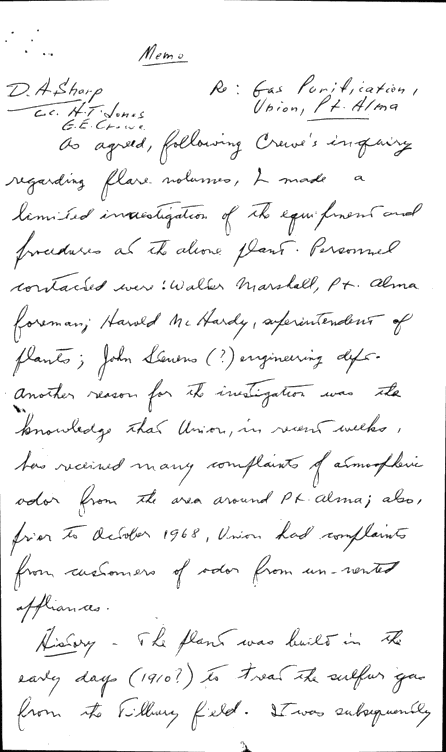 Memo
D.A. Sharp Re: Gas Purification,
cc. H.T. Jones Union, Pt. Alma
G.E. Crewe
As agreed, following Crewe's inquiry
regarding flare volumes, I made a
limited investigation of the equipment and
procedures at the above plant. Personnel
contacted were: Walter Marshall, Pt. Alma
foreman; Harold McHardy, superintendent of
plants; John Stevens (?) engineering dept.
Another reason for the investigation was the
knowledge that Union, in recent weeks,
has received many complaints of atmospheric
odor from the area around Pt. Alma; also,
prior to October 1968, Union had complaints
from customers of odor from un-vented
appliances.
History - The plant was built in the
early days (1910?) to treat the sulfur gas
from the Tilbury field. It was subsequently